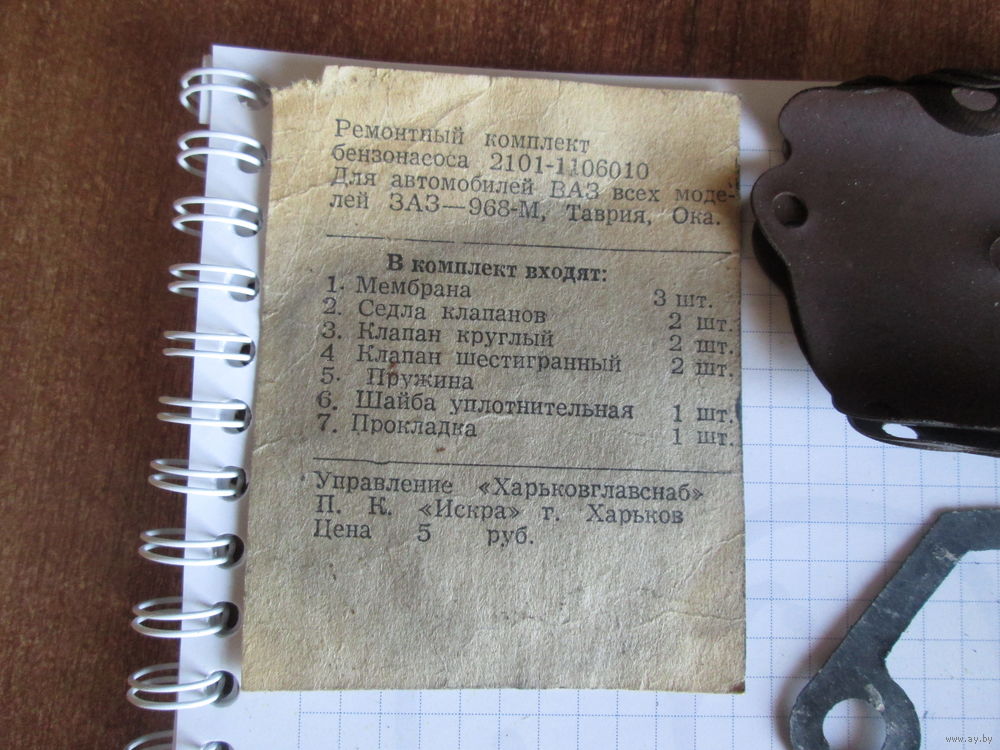 Ремонтный комплект
бензонасоса 2101-1106010
Для автомобилей ВАЗ всех моде-
лей ЗАЗ—968-М, Таврия, Ока.
В комплект входят:
1. Мембрана 3 шт.
2. Седла клапанов 2 шт.
3. Клапан круглый 2 шт.
4 Клапан шестигранный 2 шт.
5. Пружина
6. Шайба уплотнительная 1 шт.
7. Прокладка 1 шт.
Управление «Харьковглавснаб»
П. К. «Искра» г. Харьков
Цена 5 руб.
www.ay.by